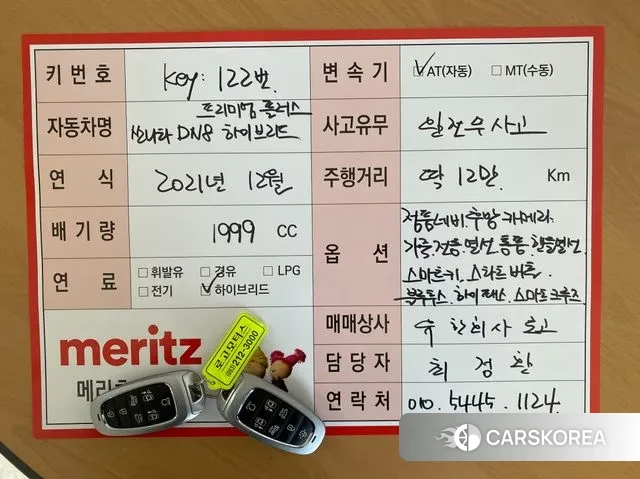 키번호 Key: 122번. 변속기 ☑AT(자동) ☐MT(수동)
프리미엄 플러스
자동차명 쏘나타 DN8 하이브리드 사고유무 완전무사고
연 식 2021년 12월 주행거리 딱 12만 Km
배기량 1999 CC
정품네비.후방카메라.
가죽.전동.열선.통풍.핸들열선.
옵 션
스마트키.스타트버튼.
블루투스.하이패스.스마트크루즈
연 료 ☐휘발유 ☐경유 ☐LPG
☐전기 ☑하이브리드
매매상사 유한회사 로고
담당자 최 경 환
연락처 010.5445.1124.
meritz
메리
로고모터스
(063)212-3000
CARSKOREA